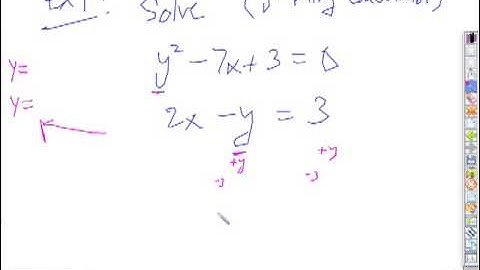 Ex 1: Solve (
y² - 7x + 3 = 0
y=
y=
2x - y = 3
+y +y
-3 -3